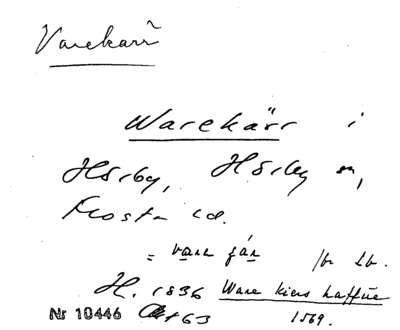 Varekärr
Warekärr i
Hörby, Hörby sn,
Frosta hd.
= vara jár
H. 1836 Ware kiers haffue
Nr 10446 63 1569.